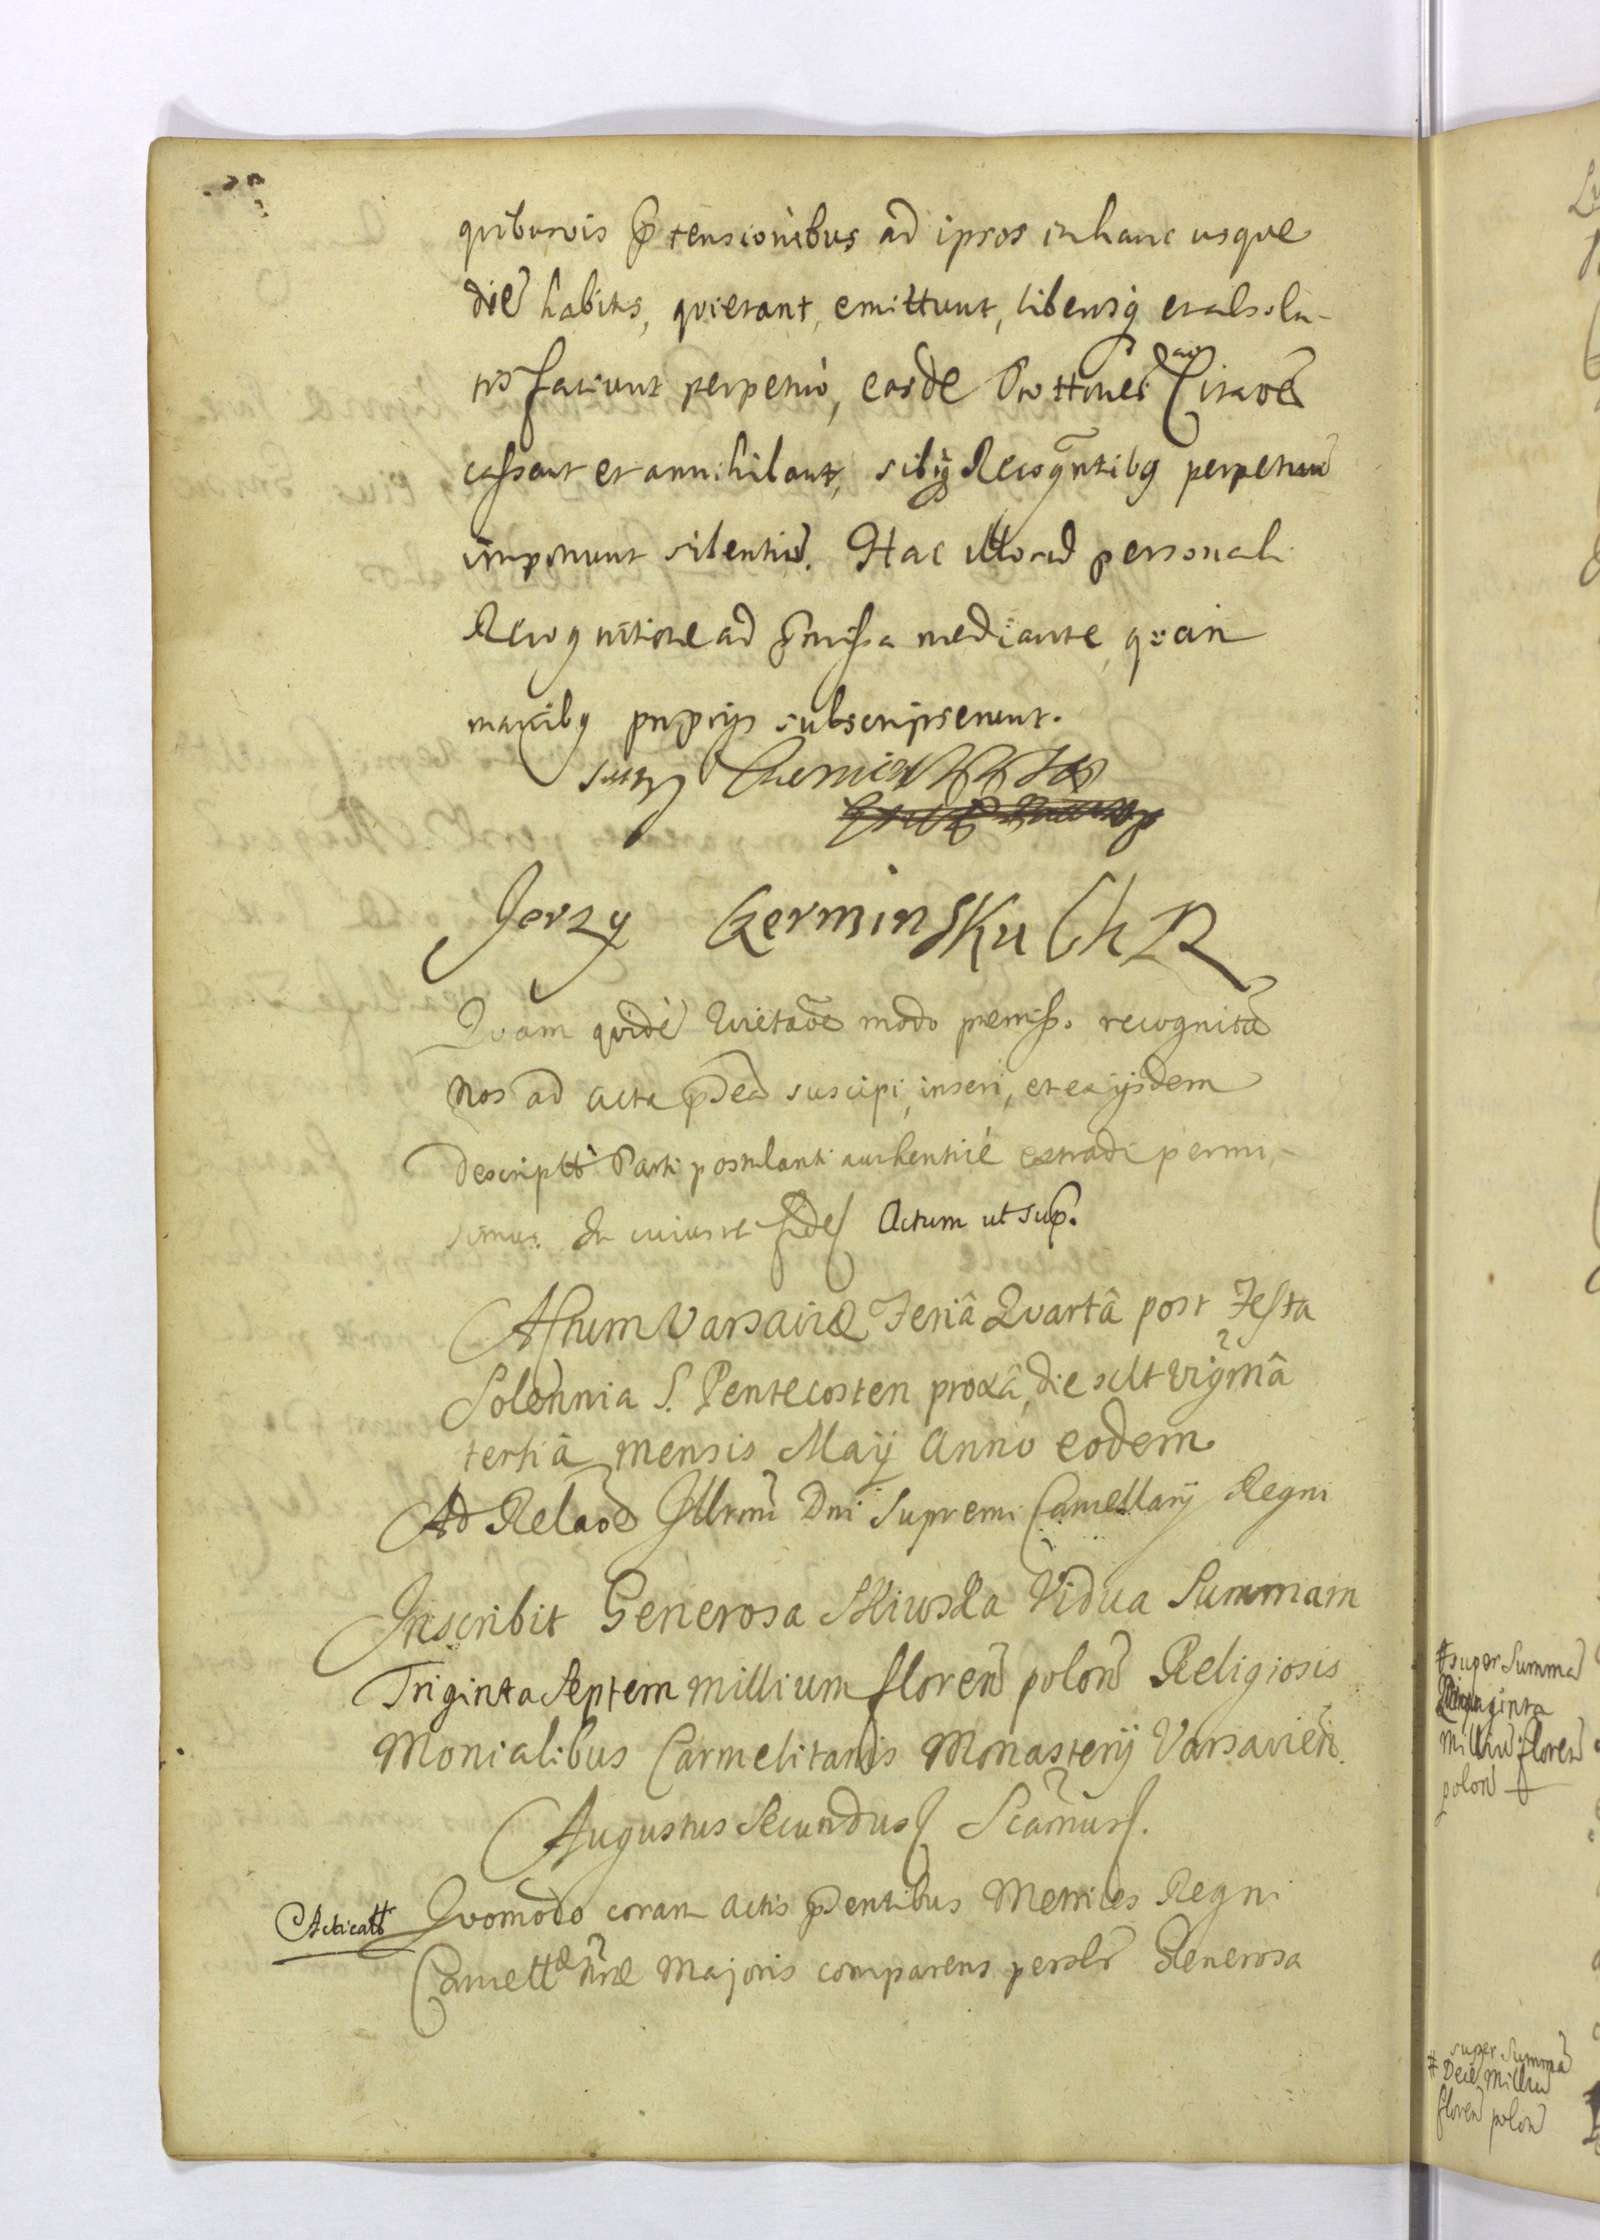 quibusvis p̃tensionibus ad ipsos in hanc usque
diẽ habitis, quietant, emittunt, liberosq; et absolu-
tos faciunt perpetuò, easdẽ Citaoẽs
cassant et annihilant, sibiq; Recog̃ntibq perpetuũ
imponunt silentiũ. Hac personali
Recognitione ad p̃missa mediante, quam
manibq proprijs subscripserunt.
Jerzy Czerminsku Ch R
Quam quidẽ Quietaõẽ modo premisso recognitã
Nos ad acta p̃ñtia suscipi, inseri, et ex ijsdem
Descriptũ Parti postulanti authenticè extradi permi-
simus. In cuius rei fidẽ Actum ut sup.
Actum Varsaviæ Feriâ Quartâ post Festa
Solennia S. Pentecosten proxâ, die sclt Vigm̃â
tertiâ mensis Maij Anno eodem
Ad Relaõẽ Illrm̃i Dni Supremi Cancellarij Regni
Inscribit Generosa Vidua Summam
Triginta Septem millium florenõ polonõ Religiosis
Monialibus Carmelitanis Monasterij Varsavien̄.
Augustus Secundus
Acticatt
Quomodo coram actis p̃entibus Metrices Regni
Cancellæ nr̃æ Majoris comparens persolr Generosa
# super Summã
Quinquaginta
Milliũ floren
polon
super Summã
# Decẽ Milliũ
floren polon